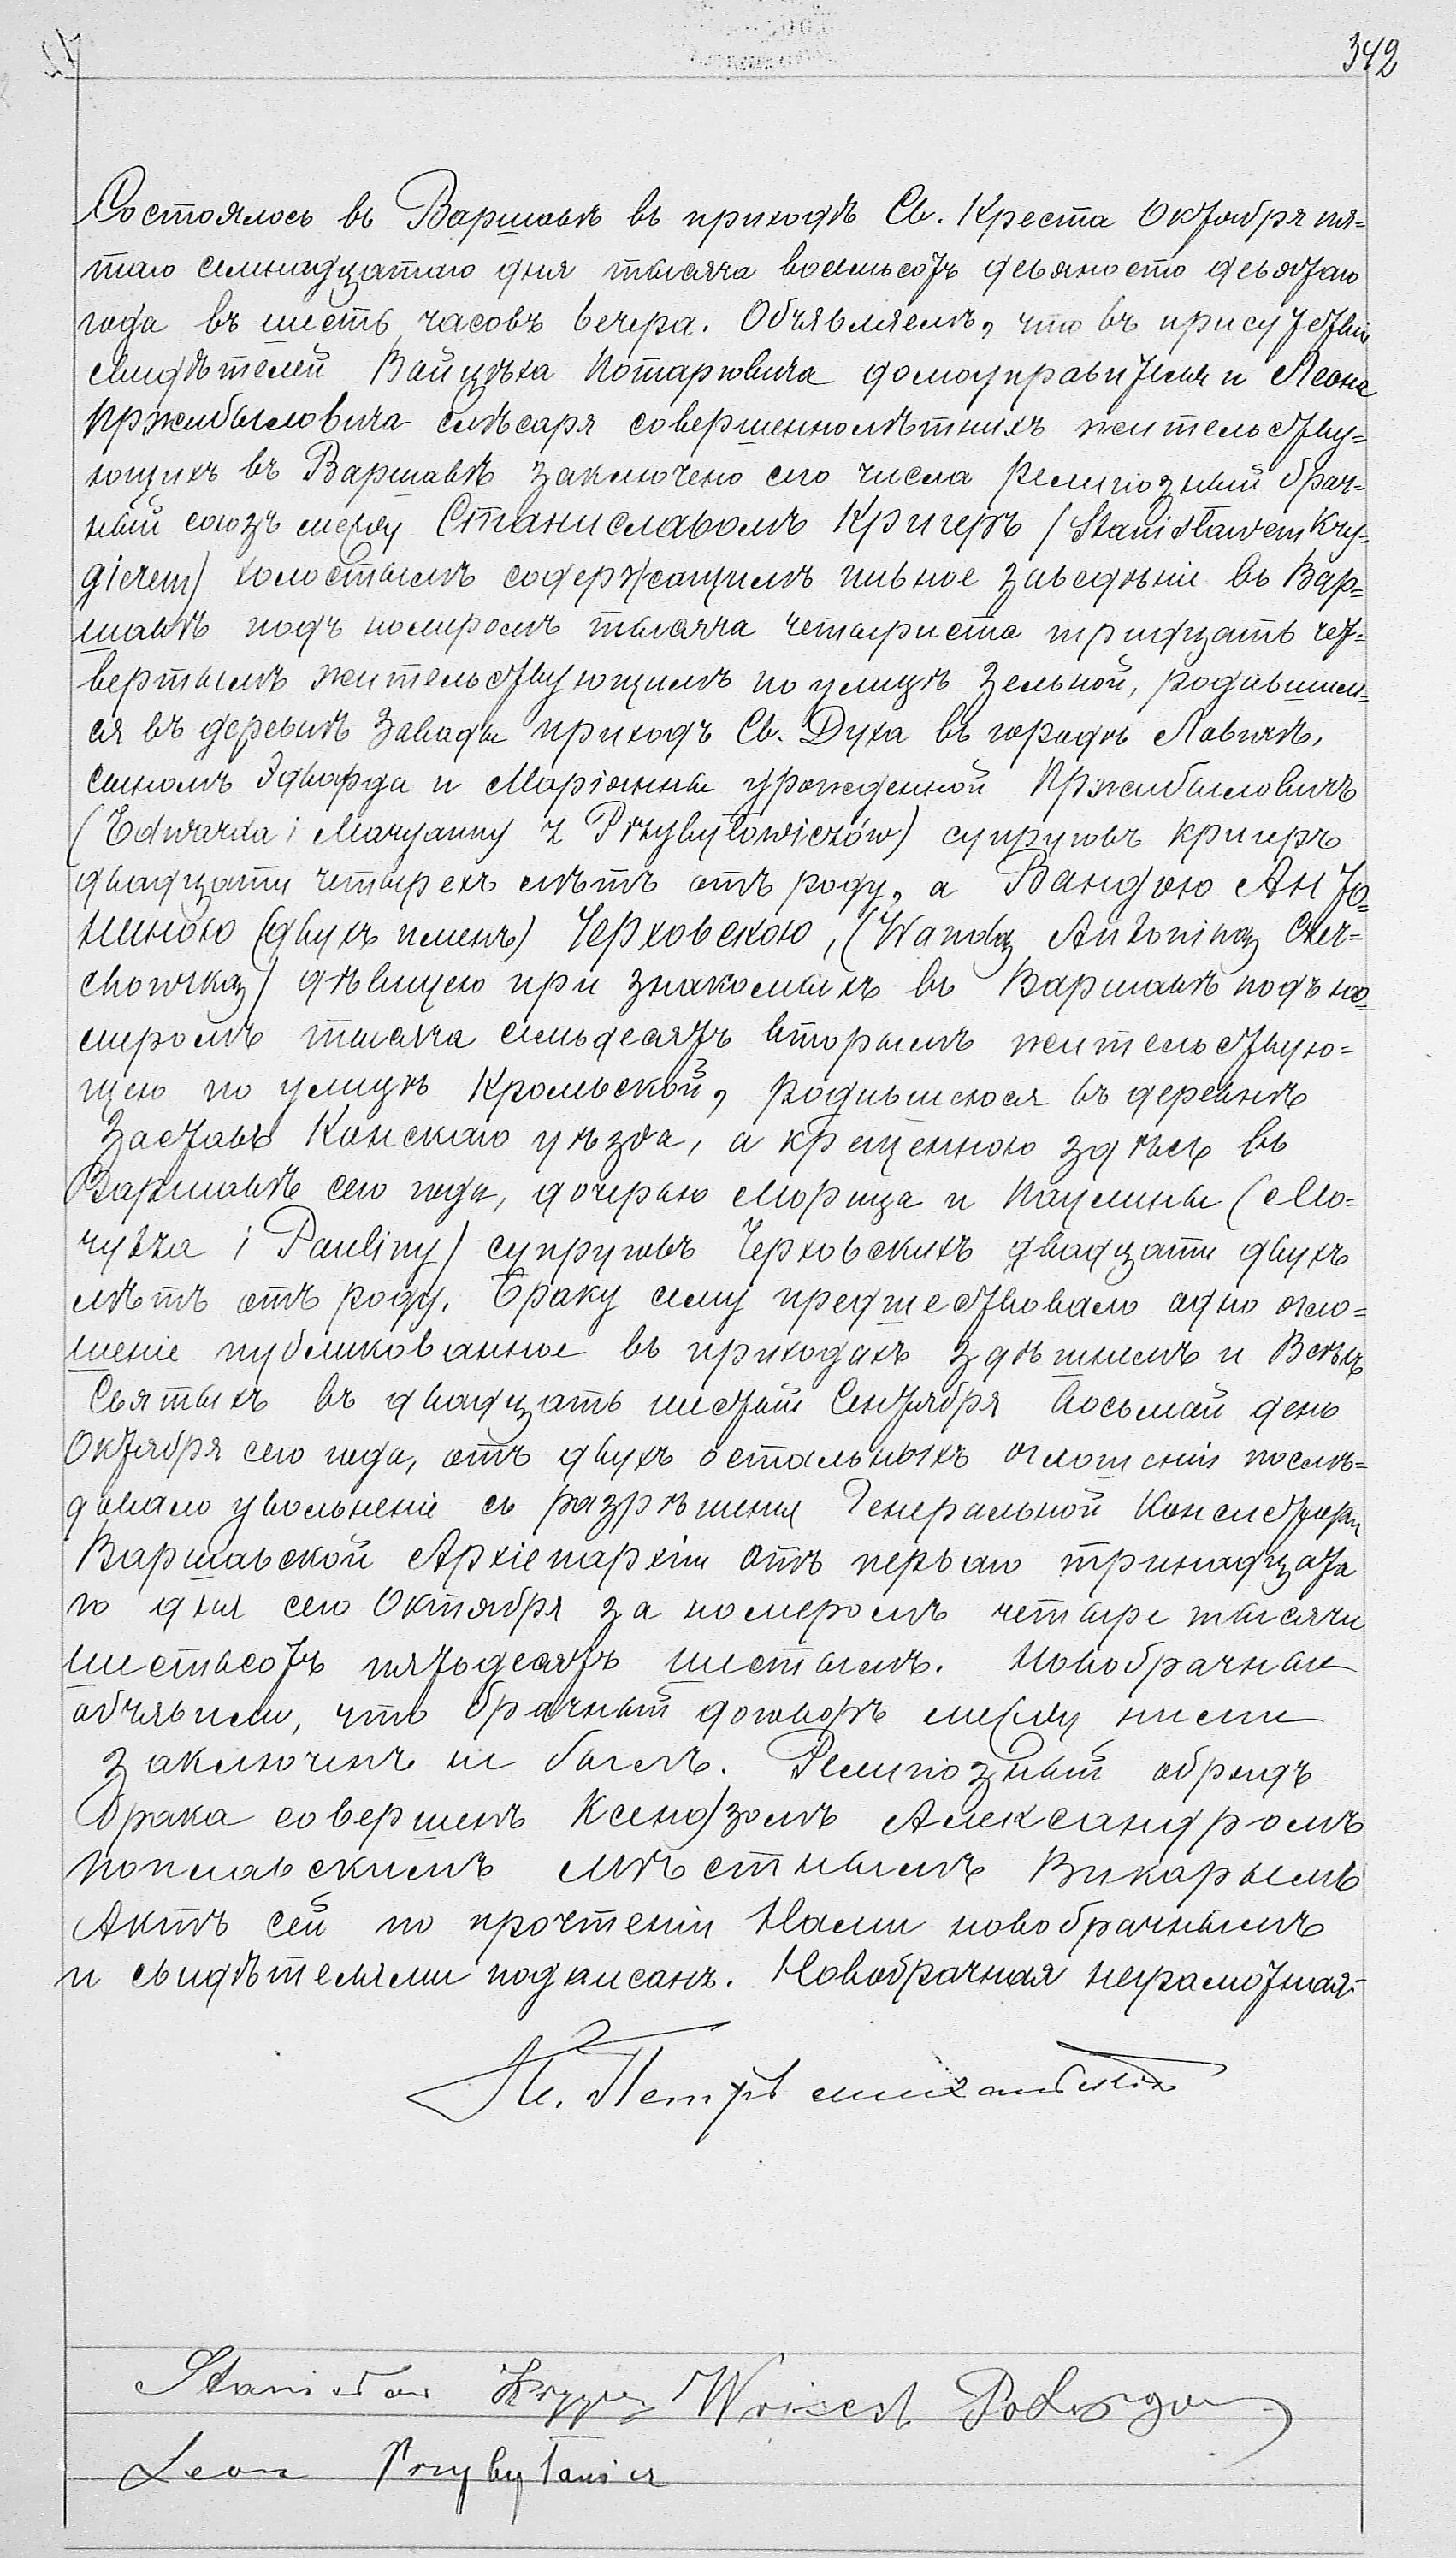 342
Состоялось въ Варшавѣ въ приходѣ Св. Креста Октября пя-
таго семнадцатаго дня тысяча восемьсотъ девяносто девятаго
года въ шесть часовъ вечера. Объявляемъ, что въ присутствіи
свидѣтелей Войцѣха Потарговича домоуправителя и Леона
Пржибыловича слѣсаря совершеннолѣтнихъ жительству-
ющихъ въ Варшавѣ заключено сего числа религіозный брач-
ный союзъ между Станиславомъ Кригеръ (Stanisławem Kry-
gierem) холостымъ содержащимъ пивное заведѣніе въ Вар-
шавѣ подъ номиромъ тысяча четыриста тридцать чет-
вертымъ жительствующимъ по улицѣ Зельной, родившим-
ся въ деревнѣ Завады приходъ Св. Духа въ городѣ Ловичѣ,
сыномъ Эдварда и Маріянны урожденной Пржибыловичъ
(Edwarda i Maryanny z Przybyłowiczów) супруговъ Кригеръ
двадцати четырехъ лѣтъ отъ роду, а Вандою Анто-
ниною (двухъ именъ) Черховскою, (Wandą Antoniną Czer-
chowską) дѣвицею при знакомыхъ въ Варшавѣ подъ но-
миромъ тысяча семьдесятъ вторымъ жительствую-
щею по улицѣ Крольской, родившеюся въ деревнѣ
Заставѣ Конскаго уѣзда, а крещенною здѣсь въ
Варшавѣ сего года, дочерью Морица и Паулины (Mo-
rytza i Pauliny) супруговъ Черховскихъ двадцати двухъ
лѣтъ отъ роду. Браку сему предшествовало одно огло-
шеніе публикованное въ приходахъ здѣшнемъ и Всѣхъ
Святыхъ въ двадцать шестый Сентября восьмой день
Октября сего года, отъ двухъ остальныхъ оглошеній послѣ-
довало увольненіе съ разрѣшенія Генеральной Консисторіи
Варшавской Архіепархіи отъ перваго тринадцата
го дня сего Октября за номеромъ четыре тысячи
шестьсотъ пятьдесятъ шестымъ. Новобрачные
объявили, что брачный договоръ между ними
заключенъ не былъ. Религіозный обрядъ
брака совершенъ Ксендзомъ Александромъ
Поплавскимъ мѣстнымъ Викарымъ
Актъ сей по прочтеніи Нами новобрачнымъ
и свидѣтелями подписанъ. Новобрачная неграмотная.
Кс. Петръ
Stanisław Krygier Woiciech
Leon Przybyłowicz